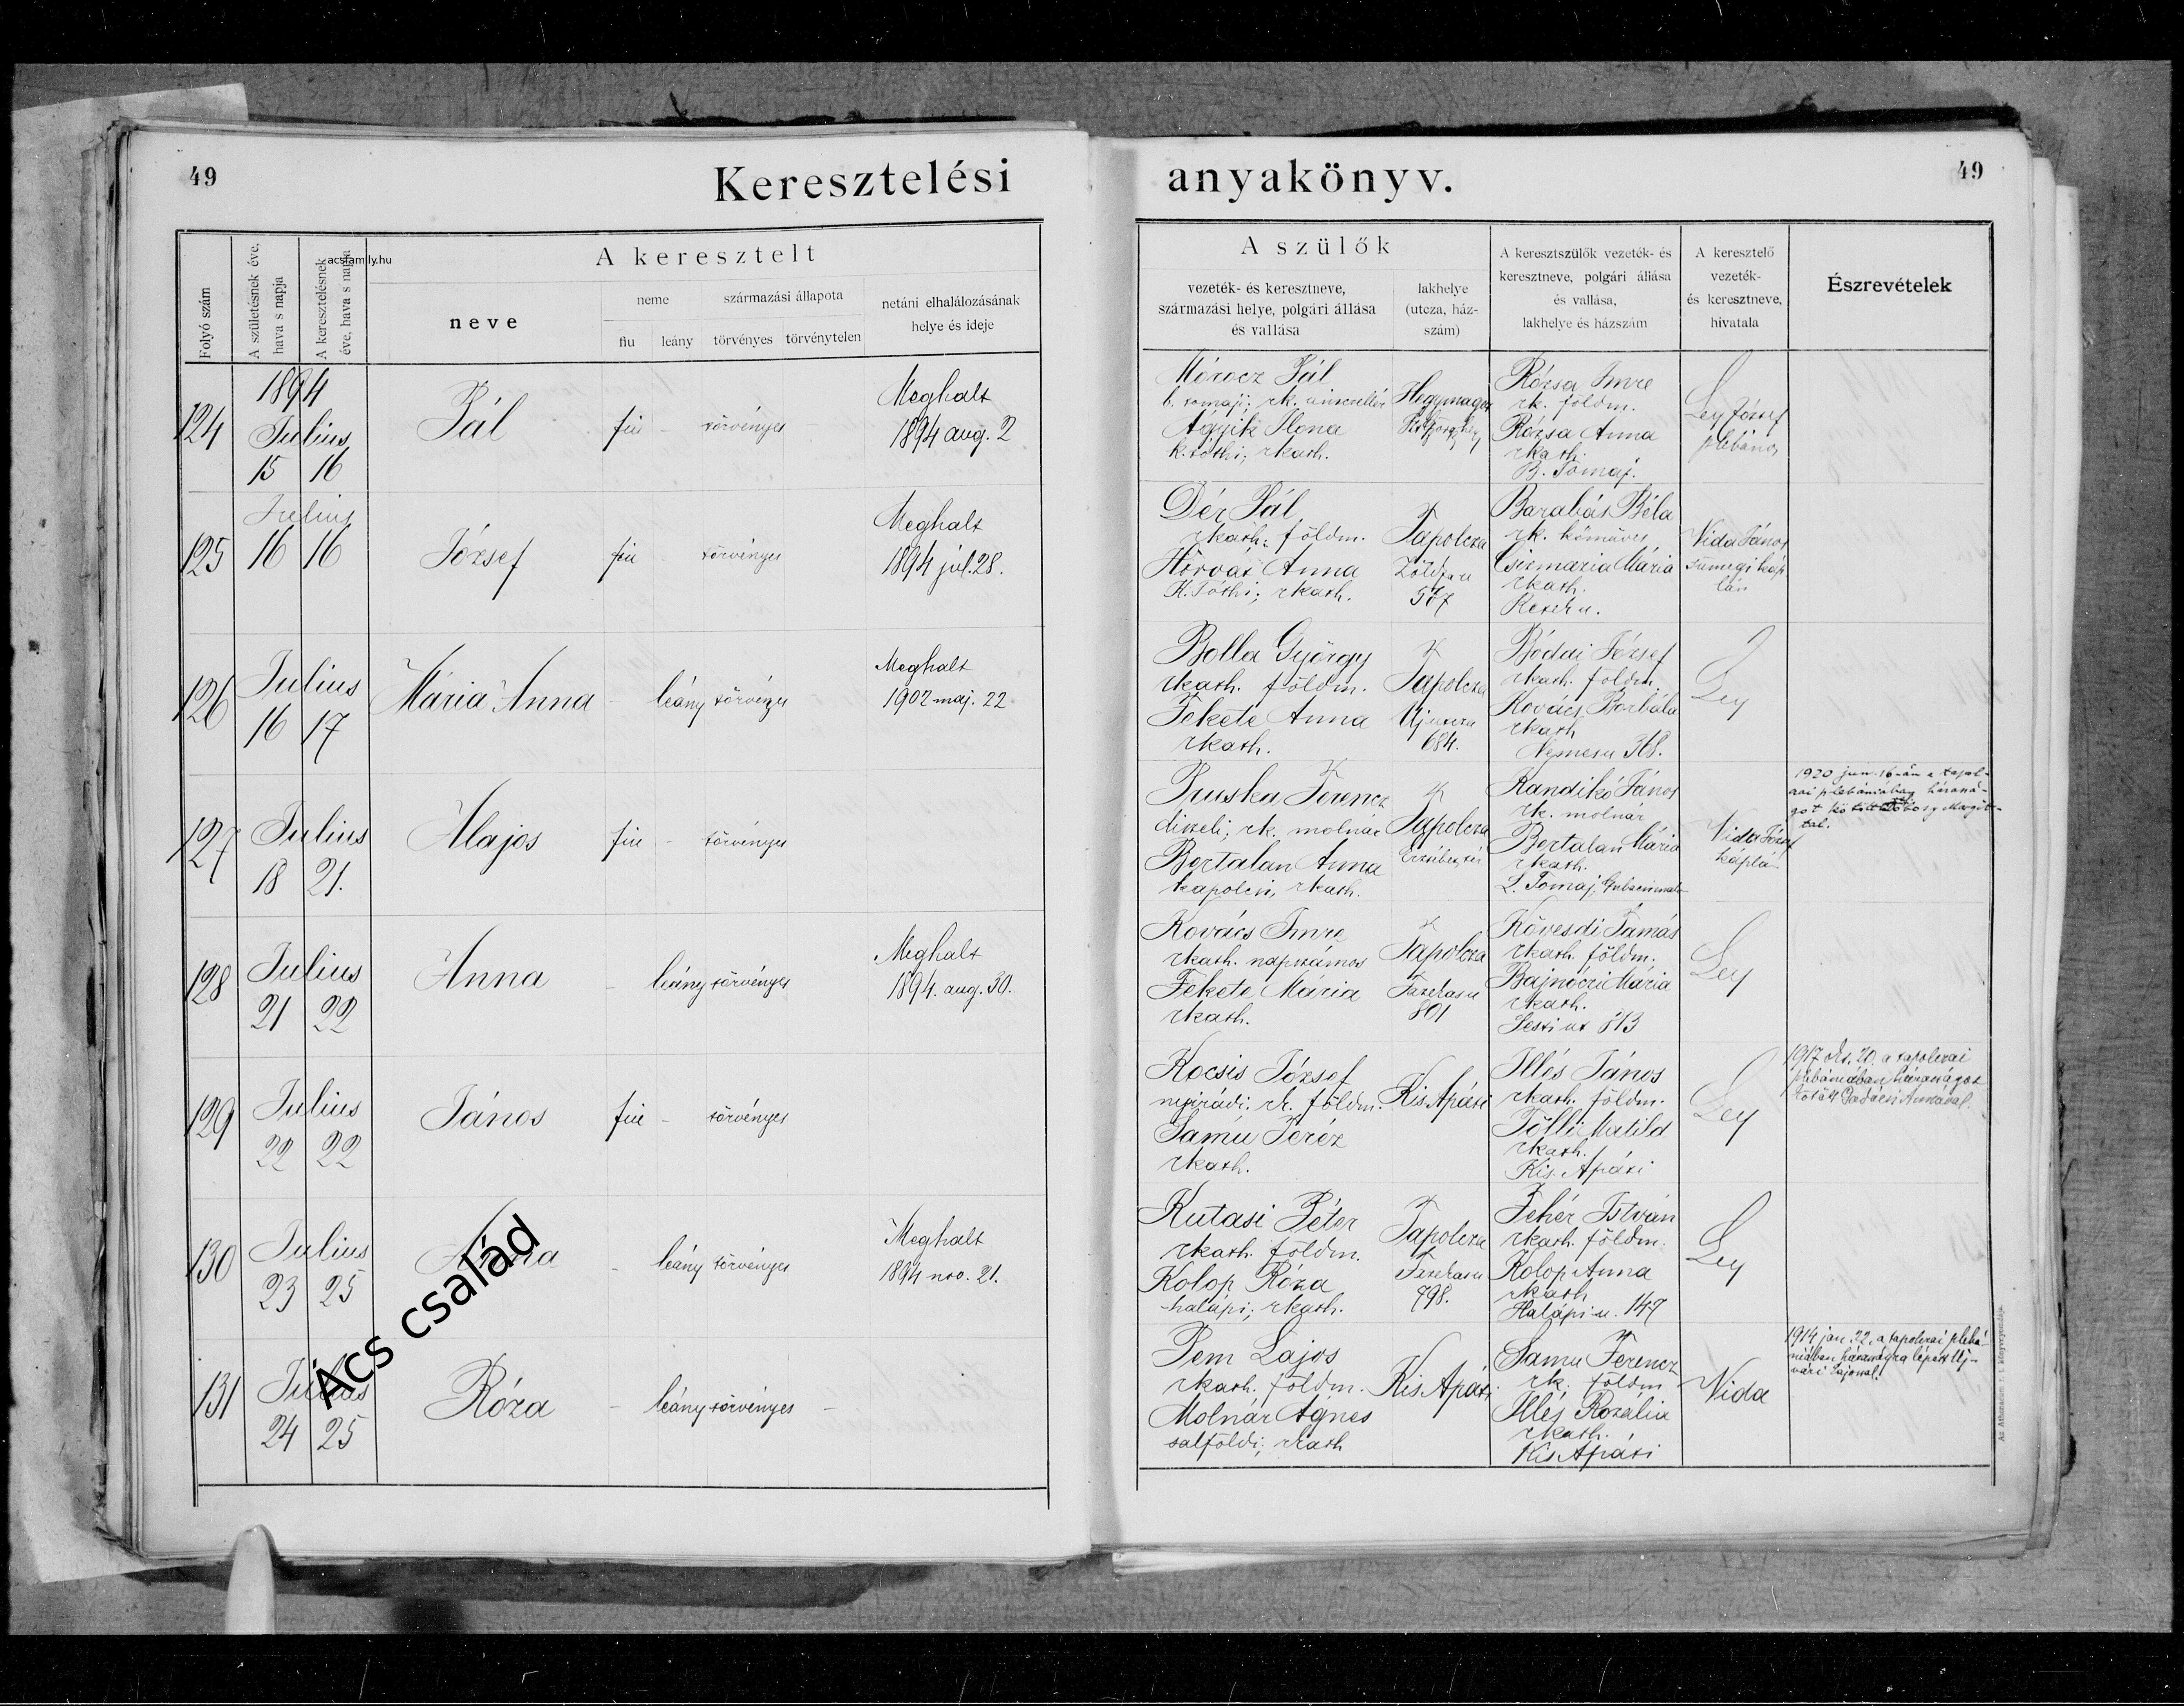 49
Keresztelési
anyakönyv.
49
Folyó szám
A születésnek éve,
hava s napja
A keresztelésnek
éve, hava s napja
acsfamily.hu
A keresztelt
neve
neme
fiu
leány
származási állapota
törvényes
törvénytelen
netáni elhalálozásának
helye és ideje
A szülők
vezeték- és keresztneve,
származási helye, polgári állása
és vallása
lakhelye
(utcza, ház-
szám)
A keresztszülők vezeték- és
keresztneve, polgári állása
és vallása,
lakhelye és házszám
A keresztelő
vezeték-
és keresztneve,
hivatala
Észrevételek
1894
124
Julius
15 16
Pál
fiu
törvényes
Meghalt
1894 aug. 2
Mórocz Pál
Ágyik Ilona
rkath.
Hegymagos
Rózsa Imre
rk. földm.
Rózsa Anna
rkath.
B. Tomaj.
Ley József
plébános
125
Julius
16 16
József
fiu
törvényes
Meghalt
1894 júl. 28.
Dér Pál
rkath. földm.
Horvát Anna
K. Tóthi; rkath.
Tapolcza
567
Barabás Béla
rk. kőmüves
Csizmazia Mária
rkath.
Vida János
sümegi káp
lán
126
Julius
16 17
Mária Anna
leány
törvényes
Meghalt
1902 maj. 22
Bolla György
rkath. földm.
Fekete Anna
rkath.
Tapolcza
Ujutcza
684.
Bódai József
rkath. földm.
Kovács Borbála
rkath
Nemesu 368.
Ley
127
Julius
18 21.
Alajos
fiu
törvényes
Puska Ferencz
diszeli; rk. molnár
Bertalan Anna
kapolcsi, rkath.
Tapolcza
Kandikó János
rk. molnár
Bertalan Mária
rkath.
L. Tomaj,
Vida József
káplá
1920 jun. 16-án a tapol-
czai plebániában házassá-
got
tal.
128
Julius
21 22
Anna
leány
törvényes
Meghalt
1894. aug. 30.
Kovács Imre
rkath. napszámos
Fekete Mária
rkath.
Tapolcza
Fazekasu
801
Kövesdi Tamás
rkath. földm.
Bajnóczi Mária
rkath.
813
Ley
129
Julius
22 22
János
fiu
törvényes
Kocsis József
nyirádi. rk. földm.
Samu Teréz
rkath.
Kis Apáti
Illés János
rkath. földm.
Tölli Matild
rkath.
Kis Apáti
Ley
1917 okt. 20. a tapolczai
plébániában házasságot
kötött
130
Julius
23 25
leány
törvényes
Meghalt
1894 nov. 21.
Kutasi Péter
rkath. földm.
Kolop Róza
halápi; rkath.
Tapolcza
Fazekasu
798.
Fehér István
rkath. földm.
Kolop Anna
rkath
Halápi u. 147
Ley
Ács család
131
Julius
24 25
Róza
leány
törvényes
Pem Lajos
rkath. földm.
Molnár Ágnes
salföldi; rkath
Kis Apáti
Samu Ferencz
rk. földm
Illés Rozália
rkath.
Kis Apáti
Vida
1914 jan. 22. a tapolczai plebá-
niában házasságra lépett Uj-
vári Lajossal.